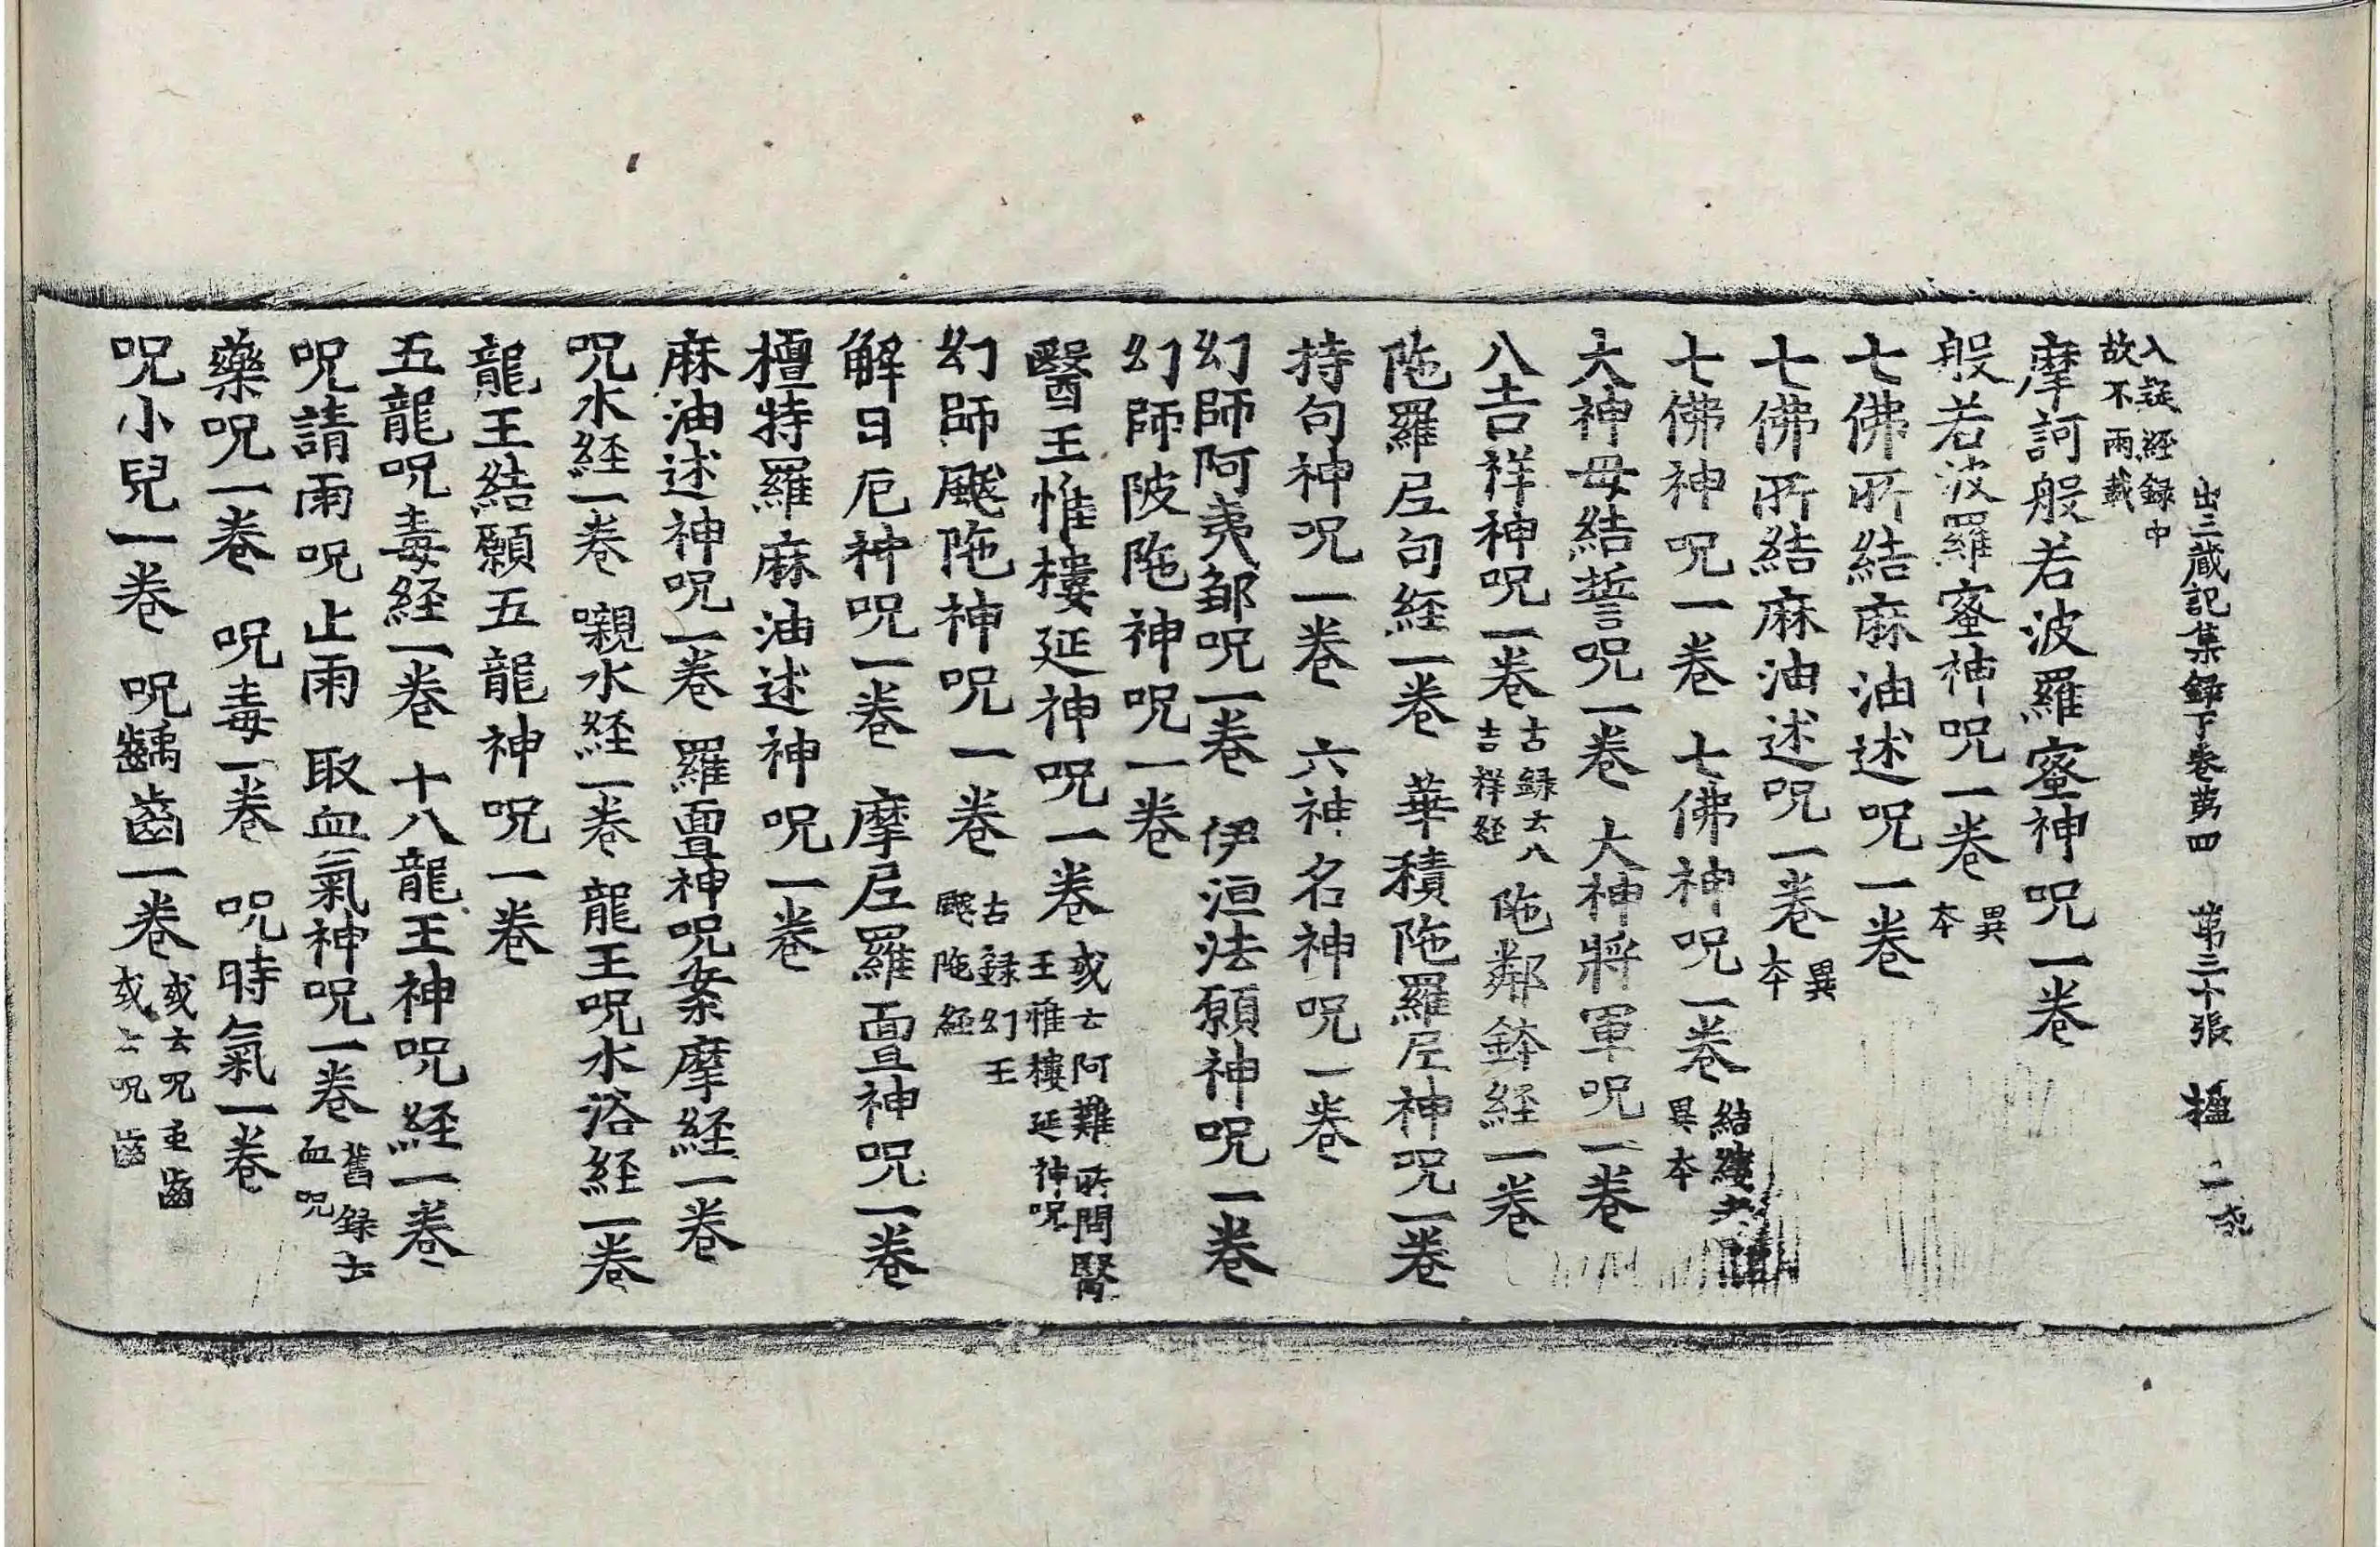 入疑経録中
故不兩載
出三藏記集録下巻苐四　苐三十張　楹
摩訶般若波羅蜜神呪一巻
般若波羅蜜神呪一巻 異本
七佛所結麻油述呪一巻
七佛所結麻油述呪一巻 異本
七佛神呪一巻　七佛神呪一巻 結縷 異本
大神母結誓呪一巻　大神將軍呪一巻
八吉祥神呪一巻 古録云八吉祥経　陁鄰鉢経一巻
陁羅尼句経一巻　華積陁羅尼神呪一巻
持句神呪一巻　六神名神呪一巻
幻師阿夷鄒呪一巻　伊洹法願神呪一巻
幻師陂陁神呪一巻
醫王惟樓延神呪一巻 或云阿難所問醫王惟樓延神呪
幻師颰陁神呪一巻 古録幻王颰陁経
解日厄神呪一巻　摩尼羅亶神呪一巻
檀特羅麻油述神呪一巻
麻油述神呪一巻　羅亶神呪案摩経一巻
呪水経一巻　嚫水経一巻　龍王呪水浴経一巻
龍王結願五龍神呪一巻
五龍呪毒経一巻　十八龍王神呪経一巻
呪請雨呪止雨　取血氣神呪一巻 舊録云血呪
藥呪一巻　呪毒一巻　呪時氣一巻
呪小兒一巻　呪齲齒一巻 或云呪虫齒或云呪齒